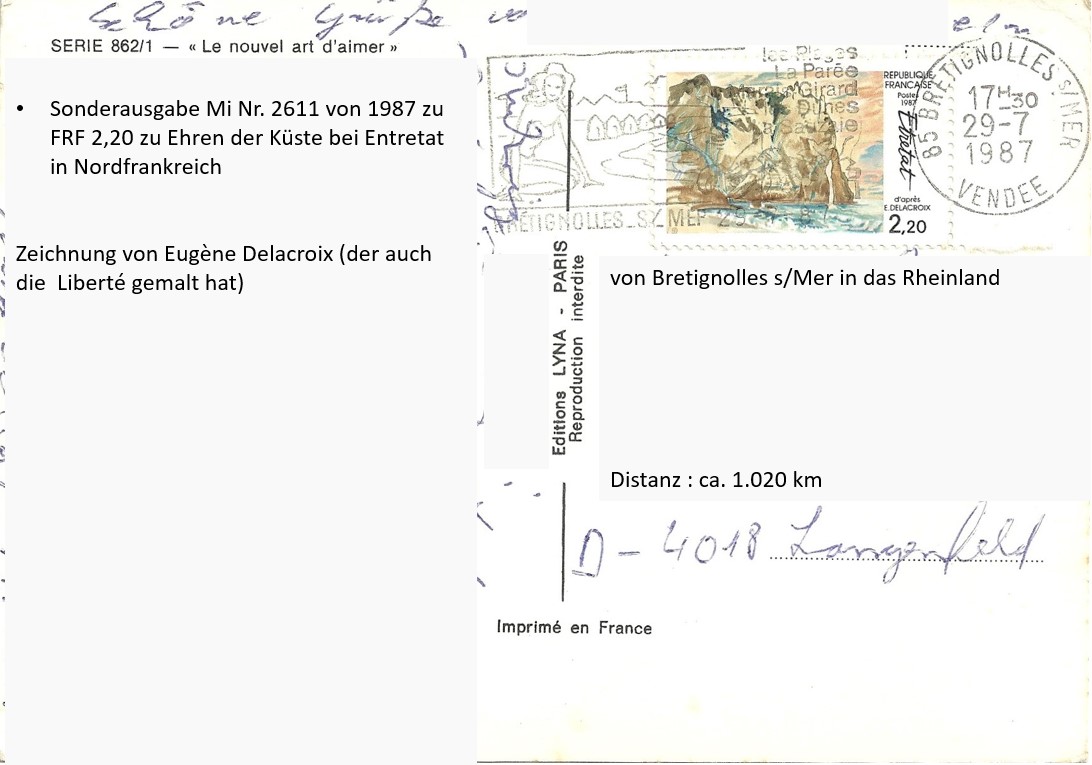 Schöne Grüße
SERIE 862/1 — « Le nouvel art d'aimer »
• Sonderausgabe Mi Nr. 2611 von 1987 zu
FRF 2,20 zu Ehren der Küste bei Entretat
in Nordfrankreich
Zeichnung von Eugène Delacroix (der auch
die Liberté gemalt hat)
les Plages
La Parée
Girard
Dunes
BRETIGNOLLES_S/MER 29
REPUBLIQUE
FRANÇAISE
Postes
1987
Etretat
d'après
E.DELACROIX
2,20
85 BRETIGNOLLES S/MER
17H30
29-7
1987
VENDEE
Editions LYNA - PARIS
Reproduction interdite
von Bretignolles s/Mer in das Rheinland
Distanz : ca. 1.020 km
D - 4018 Langenfeld
Imprimé en France